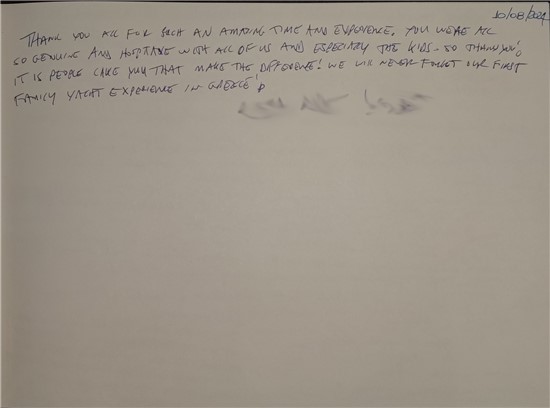 10/08/2021
THANK YOU ALL FOR SUCH AN AMAZING TIME AND EXPERIENCE. YOU WERE ALL
SO GENUINE AND HOSPITABLE WITH ALL OF US AND ESPECIALLY THE KIDS. SO THANK YOU!
IT IS PEOPLE LIKE YOU THAT MAKE THE DIFFERENCE! WE WILL NEVER FORGET OUR FIRST
FAMILY YACHT EXPERIENCE IN GREECE!